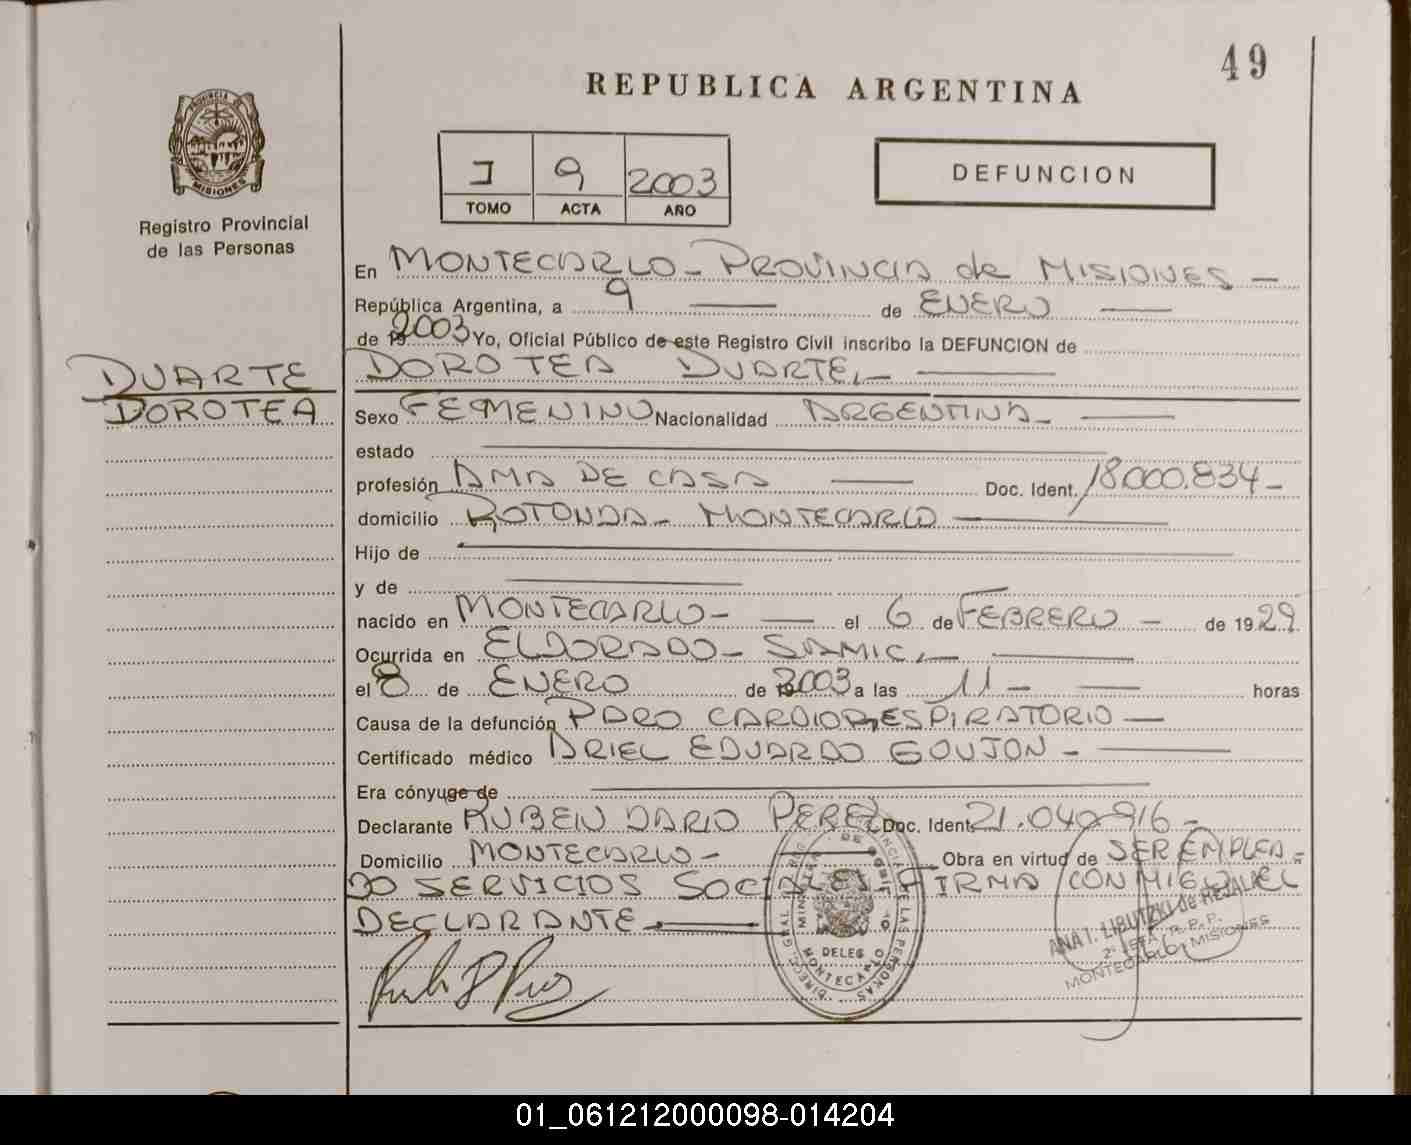 49
REPUBLICA ARGENTINA
PROVINCIA DE
MISIONES
Registro Provincial
de las Personas
I 9 2003
TOMO ACTA AÑO
DEFUNCION
En MONTECARLO - PROVINCIA de MISIONES -
República Argentina, a 9 de ENERO
de 2003 Yo, Oficial Público de este Registro Civil inscribo la DEFUNCION de
DUARTE DOROTEA DUARTE.-
DOROTEA
Sexo FEMENINO Nacionalidad ARGENTINA -
estado
profesión AMA DE CASA Doc. Ident. 18.000.834 -
domicilio ROTONDA - MONTECARLO
Hijo de
y de
nacido en MONTECARLO - el 6 de FEBRERO - de 1929
Ocurrida en ELDORADO - SAMIC.-
el 8 de ENERO de 2003 a las 11 - horas
Causa de la defunción PARO CARDIORRESPIRATORIO -
Certificado médico ARIEL EDUARDO GOUJON -
Era cónyuge de
Declarante RUBEN DARIO PEREZ Doc. Ident. 21.040.916 -
Domicilio MONTECARLO - Obra en virtud de SER EMPLEA-
DO SERVICIOS FIRMA CONMIGO EL
DECLARANTE
DELEG
MONTECARLO
DE LAS PERSONAS
ANA T. LIBUTZKI de
2° JEFA R.P.P.
MONTECARLO MISIONES
01_061212000098-014204